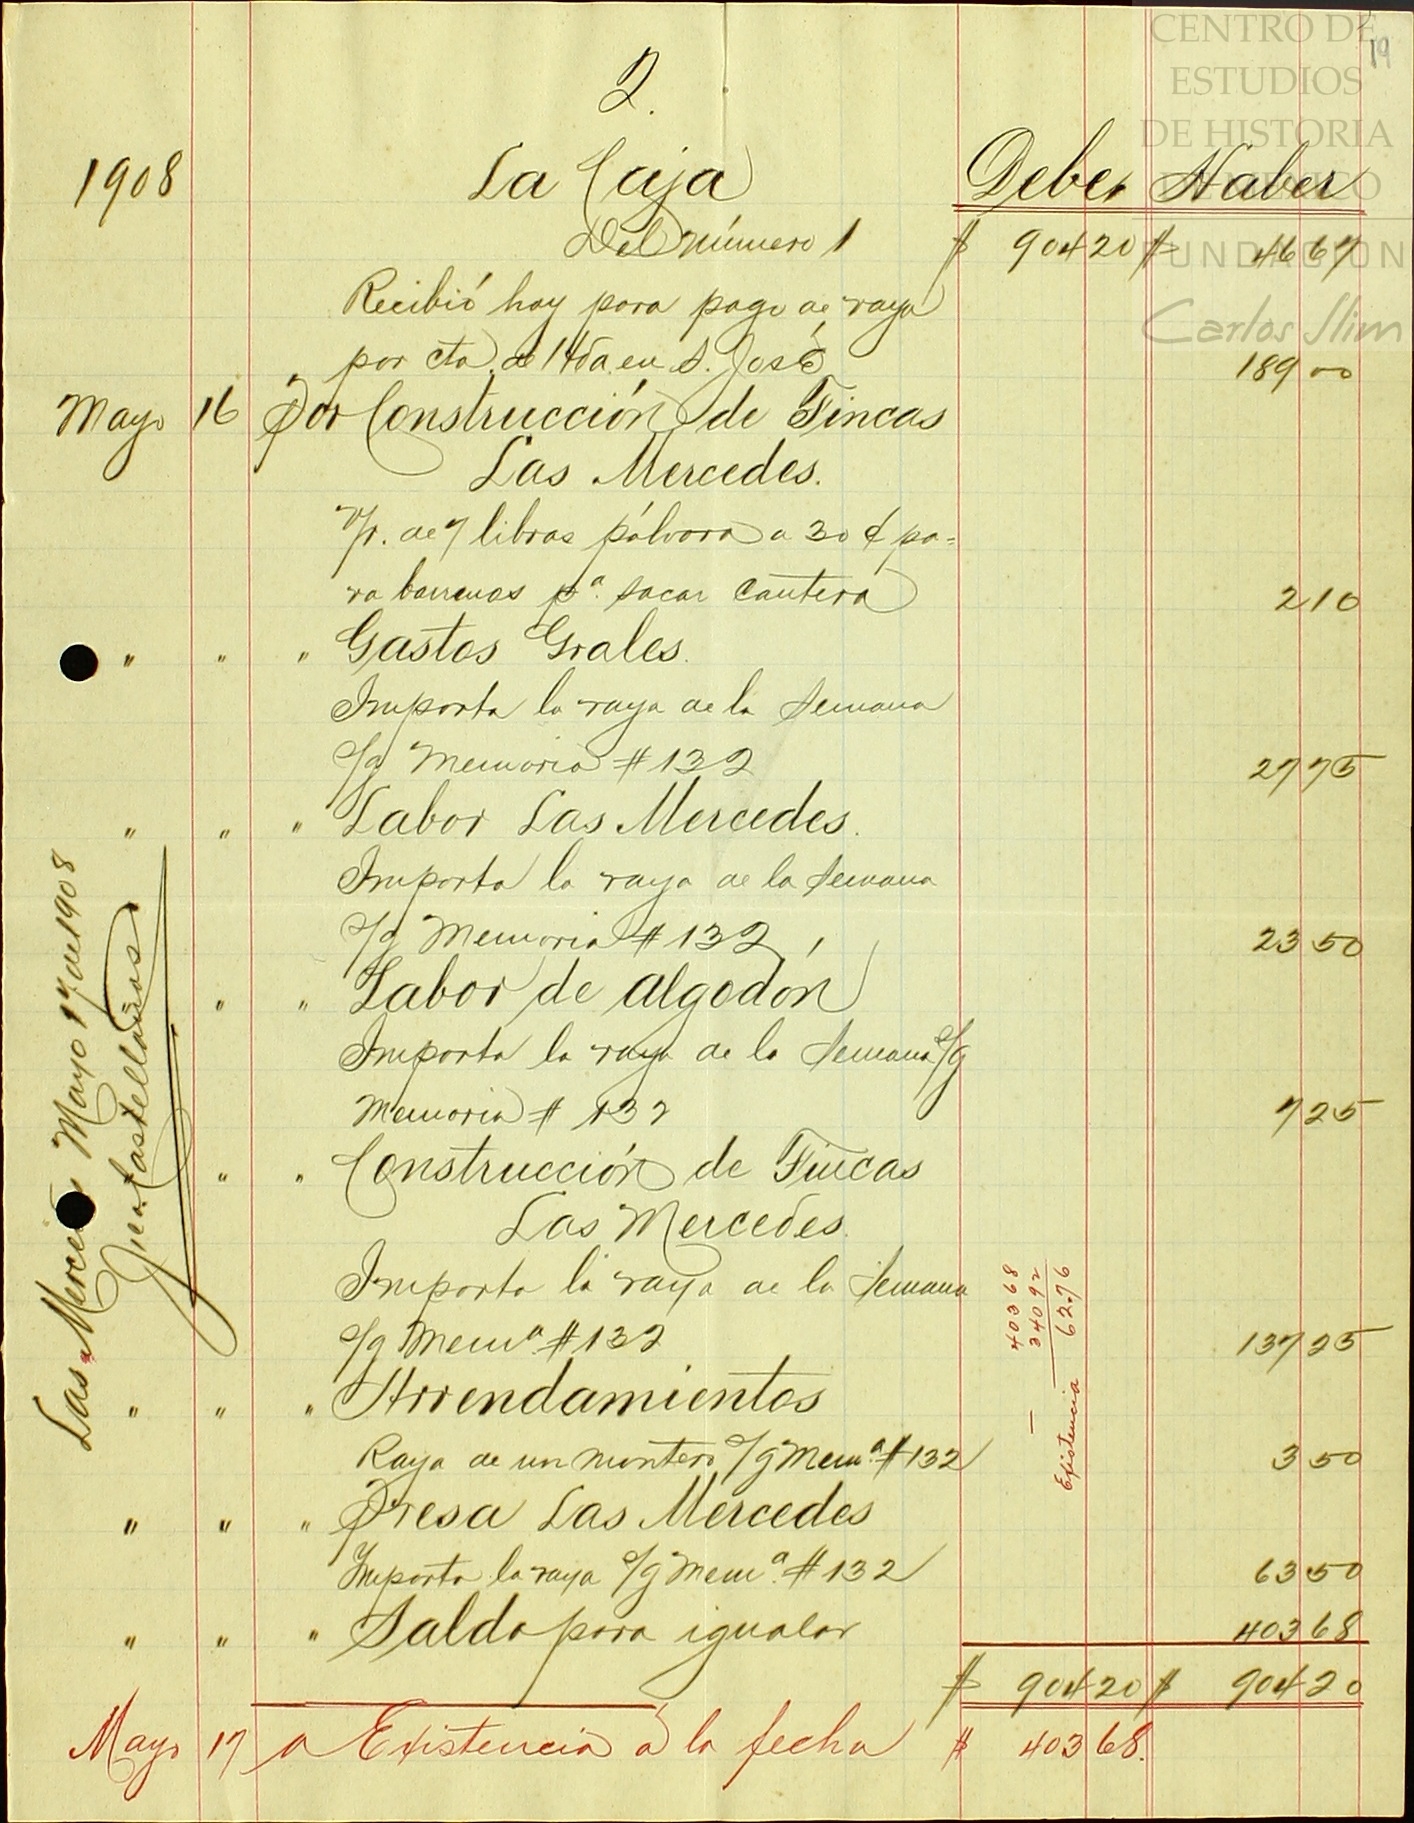 CENTRO DE
ESTUDIOS
DE HISTORIA
19
2.
1908 La Caja Debe. Haber
Del número 1 $ 904 20 $ 46 67
FUNDACION
Carlos Slim
Recibió hoy para pago de raya
por cta. de Hda en S. José 189 00
Mayo 16 Por Construcción de Fincas
Las Mercedes.
V/r. de 7 libras pólvora a 30 ¢ pa=
ra barrenos pª. sacar Cantera 2 10
" " " Gastos Grales.
Importa la raya de la Semana
s/g Memoria # 132 27 75
" " " Labor Las Mercedes.
Importa la raya de la Semana
s/g Memoria # 132 23 50
" " Labor de algodón
Importa la raya de la Semana s/g
Memoria # 132 7 25
" " Construcción de Fincas
Las Mercedes.
Importa la raya de la Semana
s/g Memª # 132 137 25
" " " Arrendamientos
Raya de un montero s/g Memª. # 132 3 50
" " " Presa Las Mercedes
Importa la raya s/g Memª. # 132 63 50
" " " Saldo para igualar 403 68
$ 904 20 $ 904 20
Mayo 17 a Existencia a la fecha $ 403 68.
Las Mercedes Mayo 17 de 1908
Juan Castellanos
403 68
340 92
Existencia 62.76